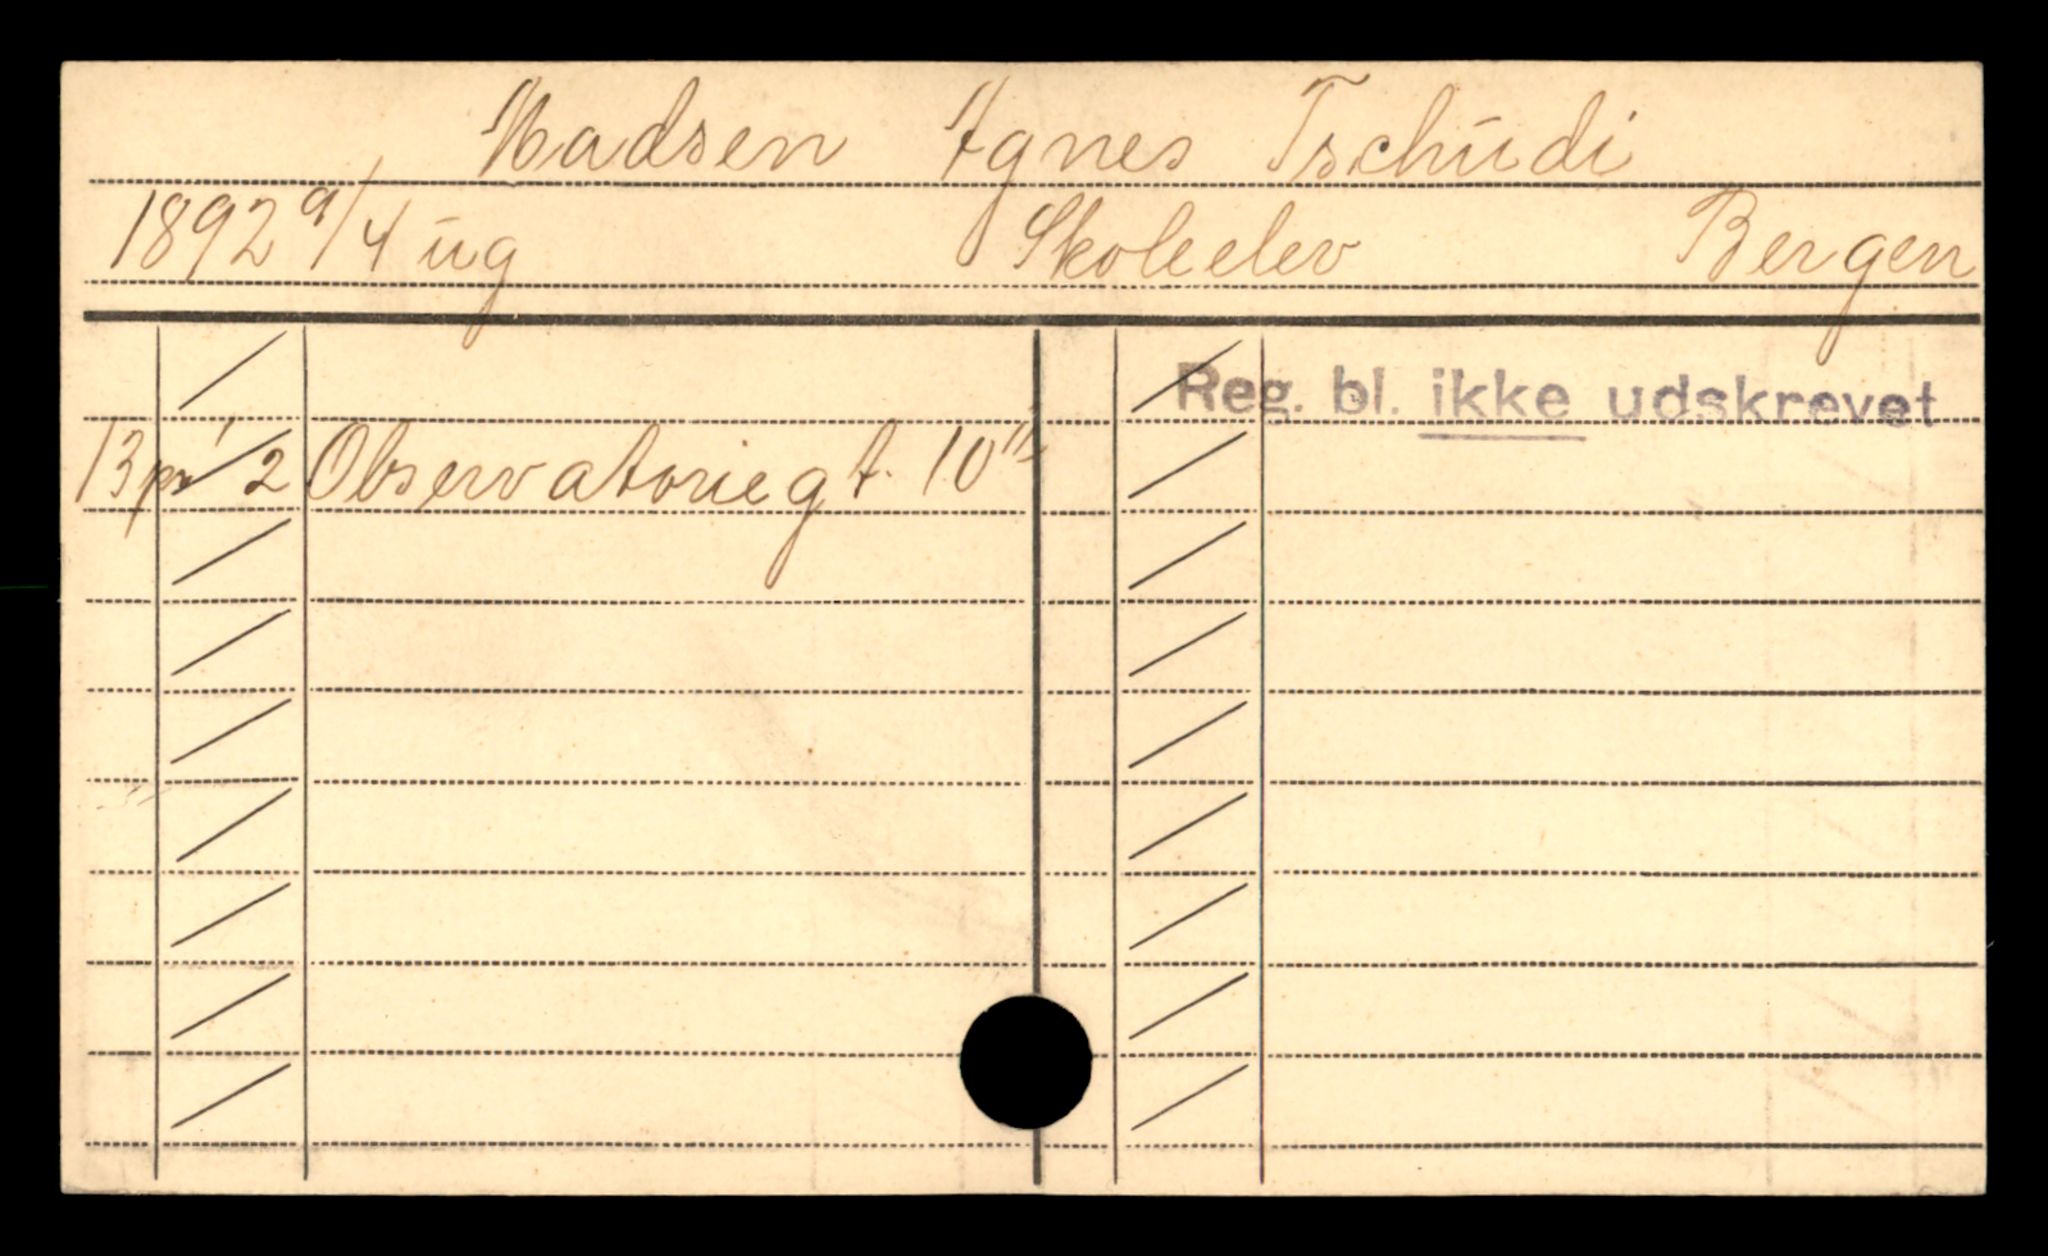 Madsen Agnes Tschudi
1892 9/4 ug Skoleelev Bergen
Reg. bl. ikke udskrevet
13 pr 1/2 Observatoriegt. 10